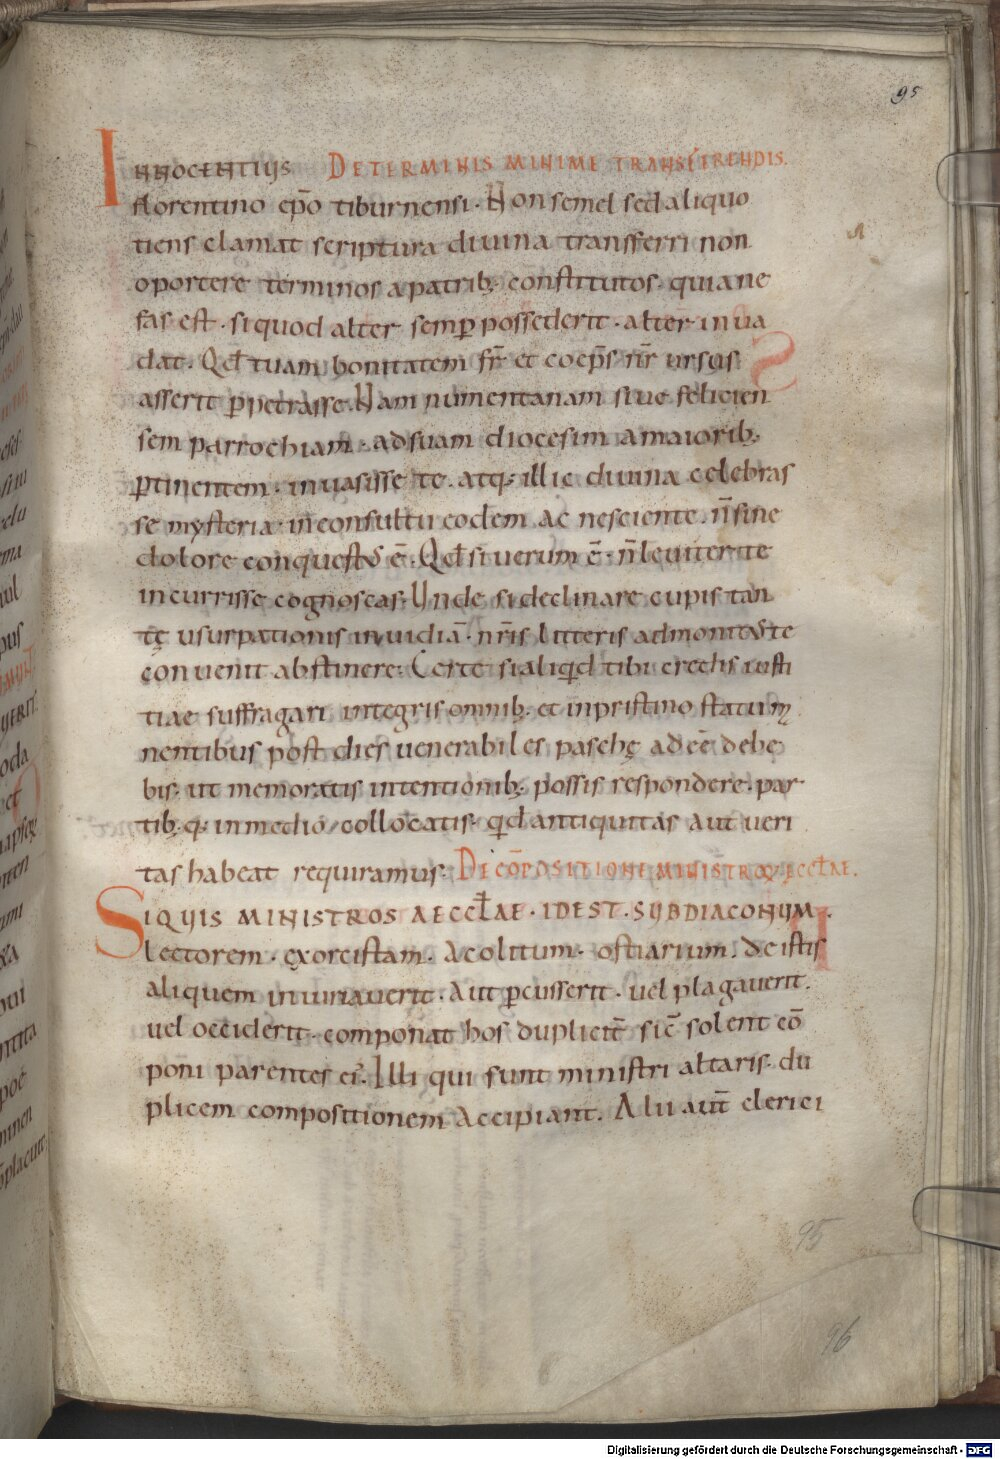 95
INNOCENTIUS DE TERMINIS MINIME TRANSFERENDIS.
florentino ep̄o tiburnensi. Non semel sed aliquo
tiens clamat scriptura divina transferri non
oportere terminos a patrib; constitutos. quia ne
fas est. si quod alter semp possederit. alter inva
dat. Qd tuam bonitatem fr̄ et coep̄s nr̄ ursus
asserit ppetrasse. Nam numentanam sive felicien
sem parrochiam. ad suam diocesim a maiorib;
ptinentem. invasisse te. atq; illic divina celebras
se mysteria. inconsultu eodem ac nesciente. n̄ sine
dolore conquestus ē. Qd si verum ē. n̄ leviter te
incurrisse cognoscas. Unde si declinare cupis tan
tę usurpationis invidiā. nr̄is litteris admonitus te
convenit abstinere. Certe si aliqd tibi credis iusti
tiae suffragari integris omnib; et in pristino statu m
nentibus post dies venerabiles paschę adeē debe
bis. ut memoratis intentionib; possis respondere. par
tib; q; in medio collocatis. qd antiquitas aut veri
tas habeat requiramus. DE CŌPOSITIONE MINISTROꝜ ECCLAE.
SIQUIS MINISTROS AECCLAE. IDEST. SUBDIACONUM.
lectorem. exorcistam. acolitum. ostiarium. de istis
aliquem iniuriaverit. Aut pcusserit. vel plagaverit.
vel occiderit. componat hos duplicit̄ sic̄ solent cō
poni parentes ei'. Illi qui sunt ministri altaris. du
plicem compositionem accipiant. Alii aut̄ clerici
95
96
Digitalisierung gefördert durch die Deutsche Forschungsgemeinschaft - DFG